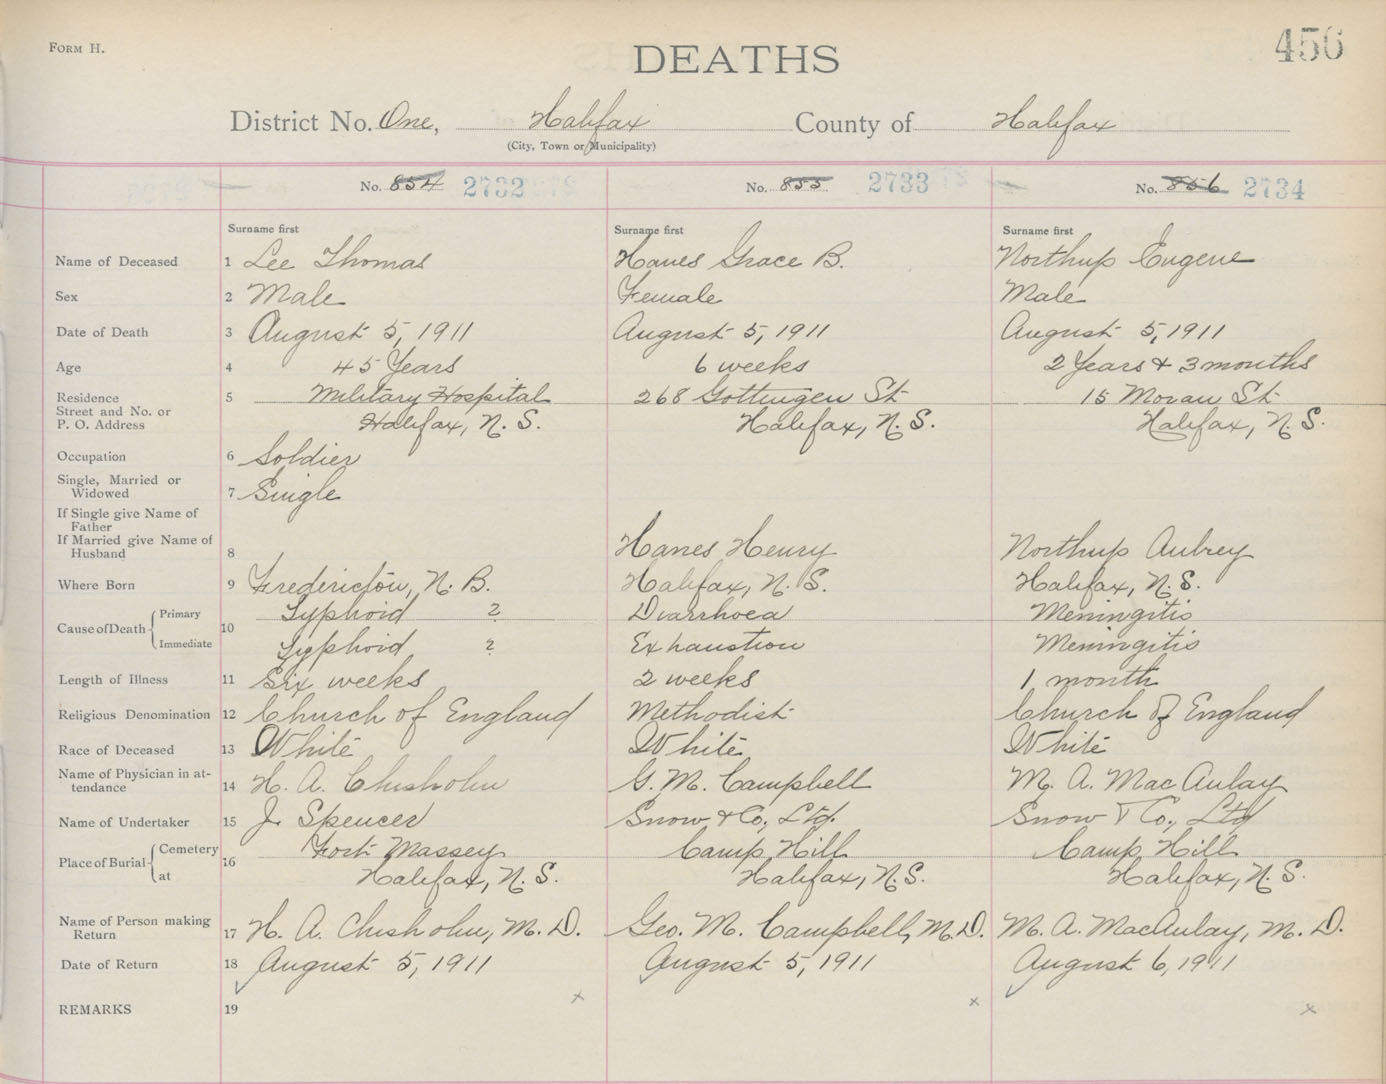 FORM H.
DEATHS
456
District No. One, Halifax County of Halifax
(City, Town or Municipality)
No. 854 2732 No. 855 2733 No. 856 2734
Surname first Surname first Surname first
Name of Deceased 1 Lee Thomas Hanes Grace B. Northup Eugene
Sex 2 Male Female Male
Date of Death 3 August 5, 1911 August 5, 1911 August 5, 1911
Age 4 45 Years 6 weeks 2 Years & 3 months
Residence 5 Military Hospital 268 Gottingen St 15 Moran St
Street and No. or
P. O. Address Halifax, N. S. Halifax, N. S. Halifax, N. S.
Occupation 6 Soldier
Single, Married or
Widowed 7 Single
If Single give Name of
Father
If Married give Name of
Husband 8 Hanes Henry Northup Aubrey
Where Born 9 Fredericton, N. B. Halifax, N. S. Halifax, N. S.
Cause of Death Primary Typhoid ? Diarrhoea Meningitis
10
Immediate Typhoid ? Exhaustion Meningitis
Length of Illness 11 Six weeks 2 weeks 1 month
Religious Denomination 12 Church of England Methodist Church of England
Race of Deceased 13 White White White
Name of Physician in at-
tendance 14 H. A. Chisholm G. M. Campbell M. A. MacAulay
Name of Undertaker 15 J. Spencer Snow & Co., Ltd. Snow & Co., Ltd
Place of Burial Cemetery Fort Massey Camp Hill Camp Hill
16
at Halifax, N. S. Halifax, N. S. Halifax, N. S.
Name of Person making
Return 17 H. A. Chisholm, M. D. Geo. M. Campbell, M. D. M. A. MacAulay, M. D.
Date of Return 18 August 5, 1911 August 5, 1911 August 6, 1911
REMARKS 19 x x x